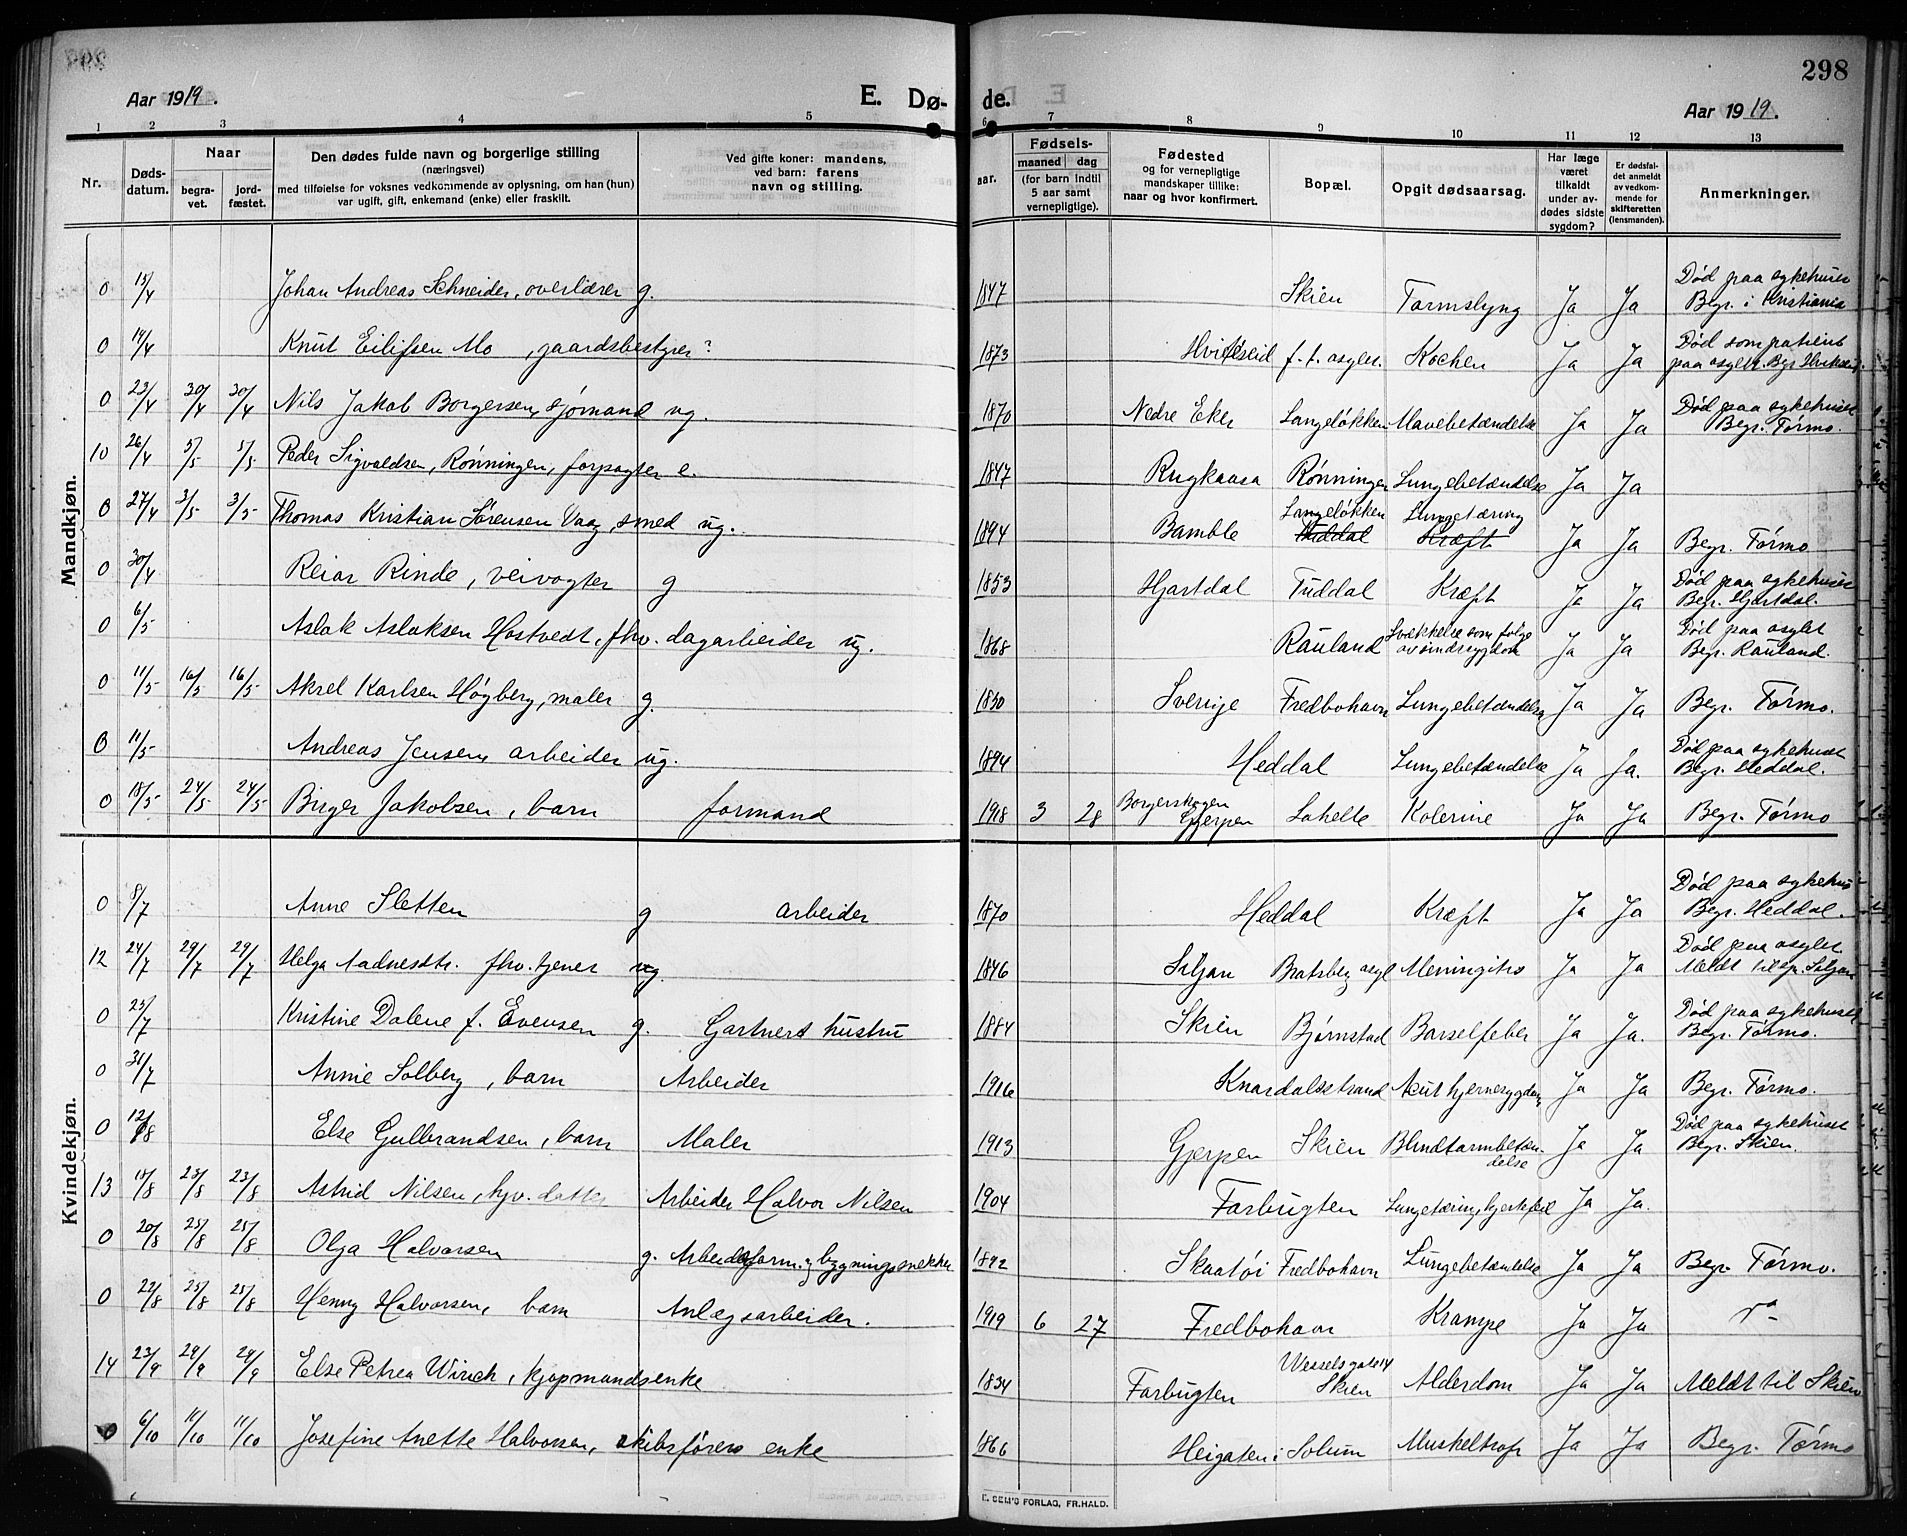 298
Aar 1919. E. Dø- de. Aar 1919.
1 2 3 4 5 6 7 8 9 10 11 12 13
Nr. Døds-datum. Naar begra-vet. jord-fæstet. Den dødes fulde navn og borgerlige stilling (næringsvei) med tilføielse for voksnes vedkommende av oplysning, om han (hun) var ugift, gift, enkemand (enke) eller fraskilt. Ved gifte koner: mandens, ved barn: farens navn og stilling. aar. Fødsels- maaned dag (for barn indtil 5 aar samt vernepligtige). Fødested og for vernepligtige mandskaper tillike: naar og hvor konfirmert. Bopæl. Opgit dødsaarsag. Har læge været tilkaldt under av-dødes sidste sygdom? Er dødsfal-det anmeldt av vedkom-mende for skifteretten (lensmanden). Anmerkninger.
Mandkjøn.
0 15/4 Johan Andreas Schneider, overlærer g. 1847 Skien Tarmslyng Ja Ja Død paa sykehuset Begr. i Kristiania
0 14/4 Knut Eilifsen Mo, gaardsbestyrer? 1873 Hvitseid f.t. asylet. Kochen Ja Ja Død som patient paa asylet. Begr
0 23/4 30/4 30/4 Nils Jakob Borgersen, sjømand ug. 1870 Nedre Eker Langeløkken Mavebetændelse Ja Ja Død paa sykehuset Begr. Førmo.
10 26/4 5/5 5/5 Peder Sigvaldsen, Rønningen, forpagter e. 1847 Rugkaasa Rønningen Lungebetændelse Ja Ja
0 27/4 3/5 3/5 Thomas Kristian Sørensen Vaag, smed ug. 1894 Bamble Langeløkken Tuddal Lungetæring Kræft Ja Ja Begr. Førmo
0 30/4 Reiar Rinde, veivogter g 1853 Hjartdal Tuddal Kræft Ja Ja Død paa sykehuset Begr. Hjartdal.
0 6/5 Aslak Aslaksen Hostvedt, fhv. dagarbeider ug. 1868 Rauland Svekkelse som følge av sindssygdom Ja Ja Død paa asylet Begr. Rauland.
0 11/5 16/5 16/5 Aksel Karlsen Høgberg, maler g. Sverige Fredbohavn Lungebetændelse Ja Ja Begr. Førmo.
0 11/5 Andreas Jensen, arbeider ug. 1894 Heddal Lungebetændelse Ja Ja. Død paa sykehuset Begr. Heddal.
0 18/5 24/5 24/5 Birger Jakobsen, barn formand 1918 3 28 Borgerskogen Gjerpen Kolerine Ja Ja Begr. Førmo
Kvindekjøn.
0 8/7 Anne Sletten g arbeider 1870 Heddal Kræft Ja Ja Død paa sykehus Begr. Heddal.
12 24/7 29/7 29/7 Helga Aadnesdtr. fhv. tjener ug 1846 Siljan Bratsberg asyl Meningitis Ja Ja Død paa asylet. Meldt til spr. Siljan
0 25/7 Kristine Dalene f. Evensen g. Gartners hustru 1884 Skien Bjørnstad Barselfeber Ja Ja. Død paa sykehuset Begr. Førmo.
0 31/7 Annie Solberg, barn Arbeider 1916 Knardalsstrand Akut hjernesygdom Ja Ja Begr. Førmo.
0 12/8 Else Gulbrandsen, barn Maler 1913 Gjerpen Skien Blindtarmbetæn-delse Ja Ja Død paa sykehuset Begr. Skien.
13 18/8 23/8 23/8 Astrid Nilsen, hjv. datter Arbeider Halvor Nilsen 1904 Farbugten Lungetæring, hjertefeil Ja Ja.
0 20/8 25/8 25/8 Olga Halvorsen g. Arbeidsform. og bygningssnekker 1892 Skaatøi Fredbohavn Lungebetændelse Ja Ja Begr. Førmo.
0 22/8 25/8 25/8 Henny Halvorsen, barn Anlægsarbeider. 1919 6 27 Fredbohavn Krampe Ja Ja
14 23/9 29/9 29/9 Else Petrea Wirich, kjøpmandsenke 1834 Farbugten Wesselsgate 14 Skien Alderdom Ja Ja Meldt til Skien
0 6/10 11/10 11/10 Josefine Anette Halvorsen, skibsførers enke 1866 Heigaten i Solum Muskeltrofi Ja Ja Begr. Førmo
E. SEM'S FORLAG, FR.HALD.